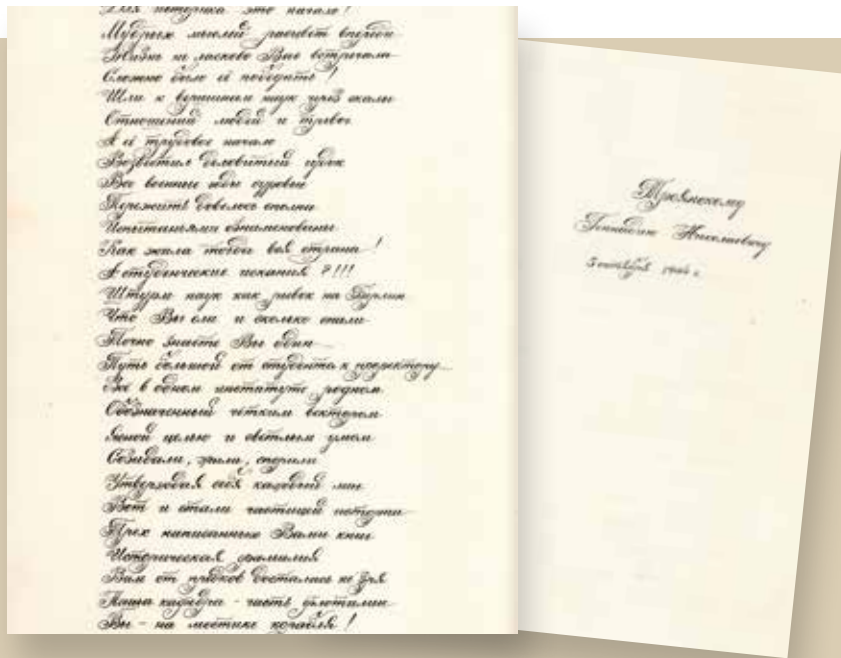 Для историка это начало!
Мудрых мыслей расцвет впереди
Жизнь не ласково Вас встречала
Сложно было её победить!
Шли к вершинам наук через скалы
Отношений людей и тревог
А её трудовое начало
Возвестил деловитый
Все военные суровые
Пережить довелось сполна
Испытаньями ознаменованы
Как жила тобой вся страна!
А студенческие искания?!!!
Штурм наук как рывок на Берлин
Что Вы ели и сколько спали
Точно знаете Вы один
Путь большой от студента к проректору...
Все в одном институте родном
Обозначенный чётким вектором
Ясной целью и светлым умом
Созидали, спорили
Утверждая своё каждый миг
Вот и стали частицей истории
Трёх написанных Вами книг
Историческая фамилия
Вам от предков досталась не зря
Наша кафедра - часть флотилии
Вы - на мостике корабля!
Трояновскому
5 октября